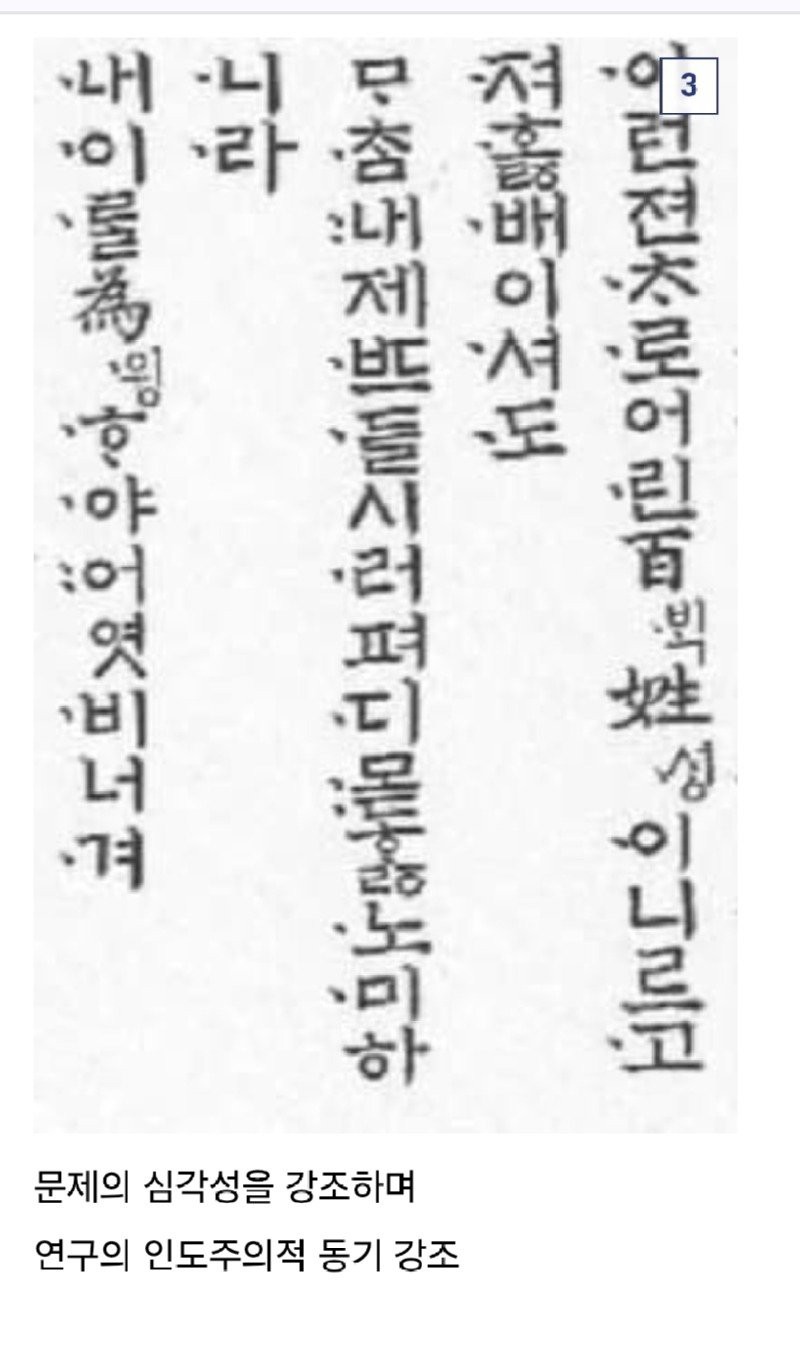 3
이런젼ᄎᆞ로어린百ᄇᆡᆨ姓셩이니르고
져호ᇙ배이셔도
ᄆᆞᄎᆞᆷ내제ᄠᅳ들시러펴디몯ᄒᆞᇙ노미하
니라
내이ᄅᆞᆯ為윙ᄒᆞ야어엿비너겨
문제의 심각성을 강조하며
연구의 인도주의적 동기 강조